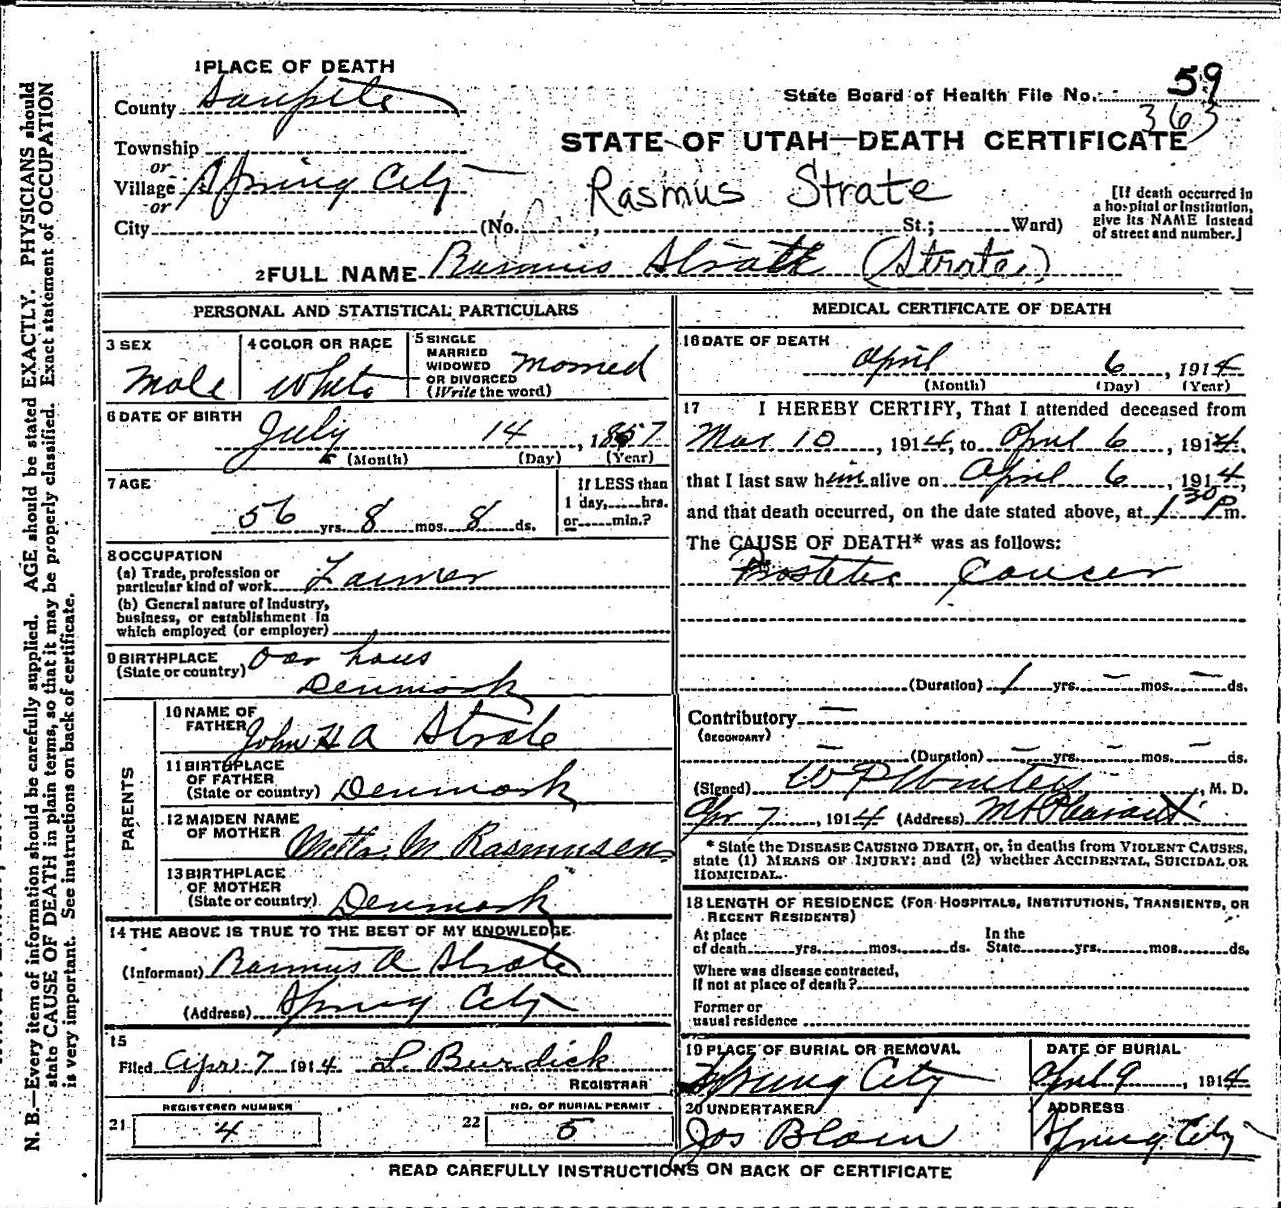 1 PLACE OF DEATH
County Sanpete
State Board of Health File No. 59
363
Township
or
Village Spring City
or
STATE OF UTAH—DEATH CERTIFICATE
Rasmus Strate
[If death occurred in
a hospital or institution,
give its NAME instead
of street and number.]
City (No. , St.; Ward)
2 FULL NAME Rasmus Strate (Strate)
PERSONAL AND STATISTICAL PARTICULARS
3 SEX
Male
4 COLOR OR RACE
White
5 SINGLE
MARRIED
WIDOWED
OR DIVORCED
(Write the word)
Married
6 DATE OF BIRTH
July 14, 1857
(Month) (Day) (Year)
7 AGE
56 yrs. 8 mos. 8 ds.
If LESS than
1 day, hrs.
or min.?
8 OCCUPATION
(a) Trade, profession or
particular kind of work Farmer
(b) General nature of Industry,
business, or establishment in
which employed (or employer)
9 BIRTHPLACE
(State or country) Oar hous
Denmark
PARENTS
10 NAME OF
FATHER John H A Strate
11 BIRTHPLACE
OF FATHER
(State or country) Denmark
12 MAIDEN NAME
OF MOTHER Metta M Rasmussen
13 BIRTHPLACE
OF MOTHER
(State or country) Denmark
14 THE ABOVE IS TRUE TO THE BEST OF MY KNOWLEDGE
(Informant) Rasmus A Strate
(Address) Spring City
15
Filed Apr 7 1914 L. Burdick
REGISTRAR
21 REGISTERED NUMBER
4
22 NO. OF BURIAL PERMIT
5
MEDICAL CERTIFICATE OF DEATH
16 DATE OF DEATH
April 6, 1914
(Month) (Day) (Year)
17 I HEREBY CERTIFY, That I attended deceased from
Mar 10, 1914, to April 6, 1914,
that I last saw him alive on April 6, 1914,
and that death occurred, on the date stated above, at 1 30 P m.
The CAUSE OF DEATH* was as follows:
Prostetic Cancer
(Duration) 1 yrs. — mos. — ds.
Contributory —
(SECONDARY)
— (Duration) — yrs. — mos. — ds.
(Signed) W P Winters, M. D.
Apr 7, 1914 (Address) Mt Pleasant
* State the DISEASE CAUSING DEATH, or, in deaths from VIOLENT CAUSES,
state (1) MEANS OF INJURY; and (2) whether ACCIDENTAL, SUICIDAL OR
HOMICIDAL.
18 LENGTH OF RESIDENCE (FOR HOSPITALS, INSTITUTIONS, TRANSIENTS, OR
RECENT RESIDENTS)
At place
of death yrs. mos. ds.
In the
State yrs. mos. ds.
Where was disease contracted,
If not at place of death?
Former or
usual residence
19 PLACE OF BURIAL OR REMOVAL
Spring City
DATE OF BURIAL
April 9, 1914
20 UNDERTAKER
Jos Blain
ADDRESS
Spring City
READ CAREFULLY INSTRUCTIONS ON BACK OF CERTIFICATE
N. B.—Every item of information should be carefully supplied. AGE should be stated EXACTLY. PHYSICIANS should
state CAUSE OF DEATH in plain terms, so that it may be properly classified. Exact statement of OCCUPATION
is very important. See instructions on back of certificate.